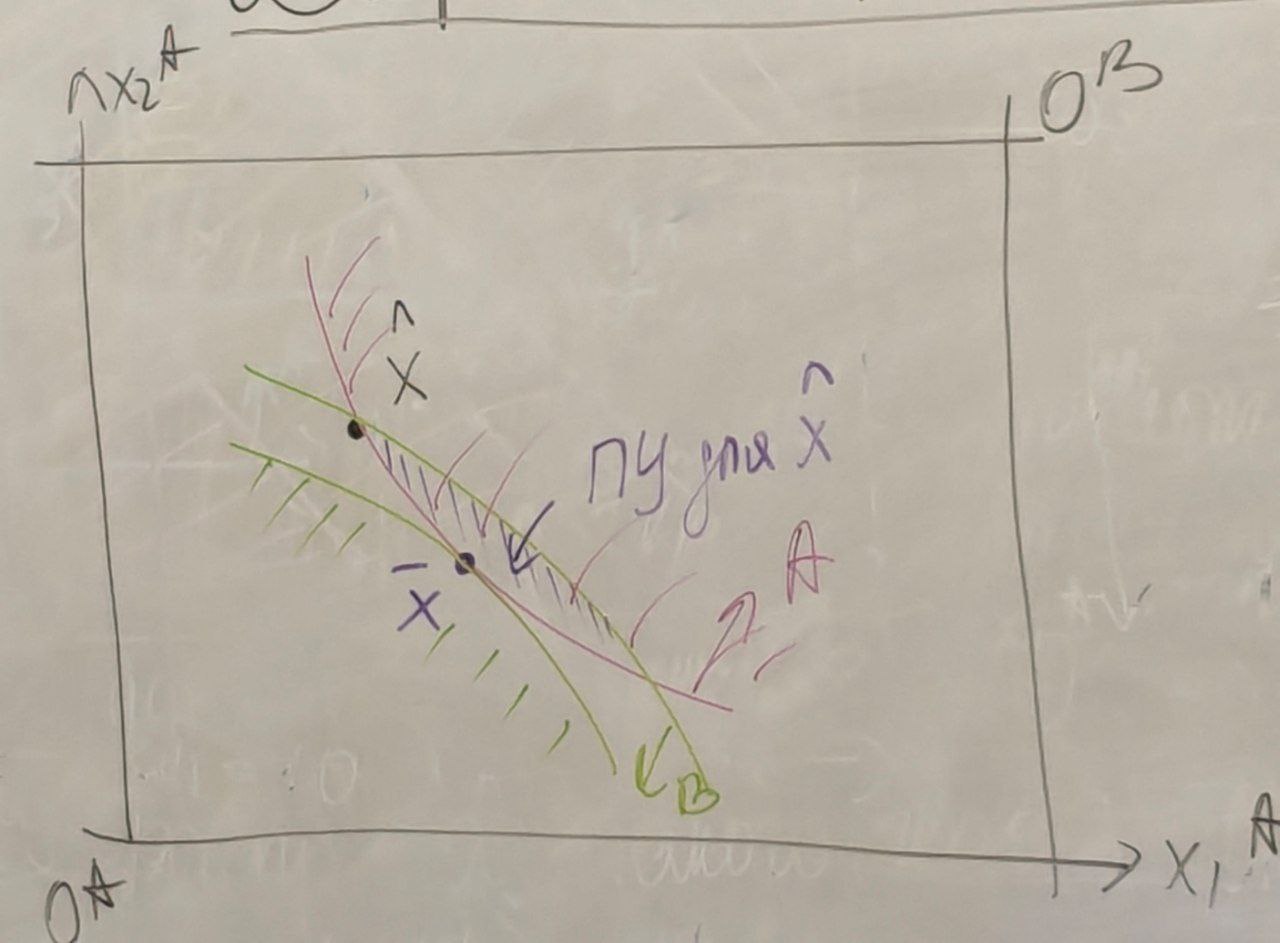 x₂ᴬ
Oᴮ
x̂
ПУ для x̂
A
x̄
B
x₁ᴬ
Oᴬ